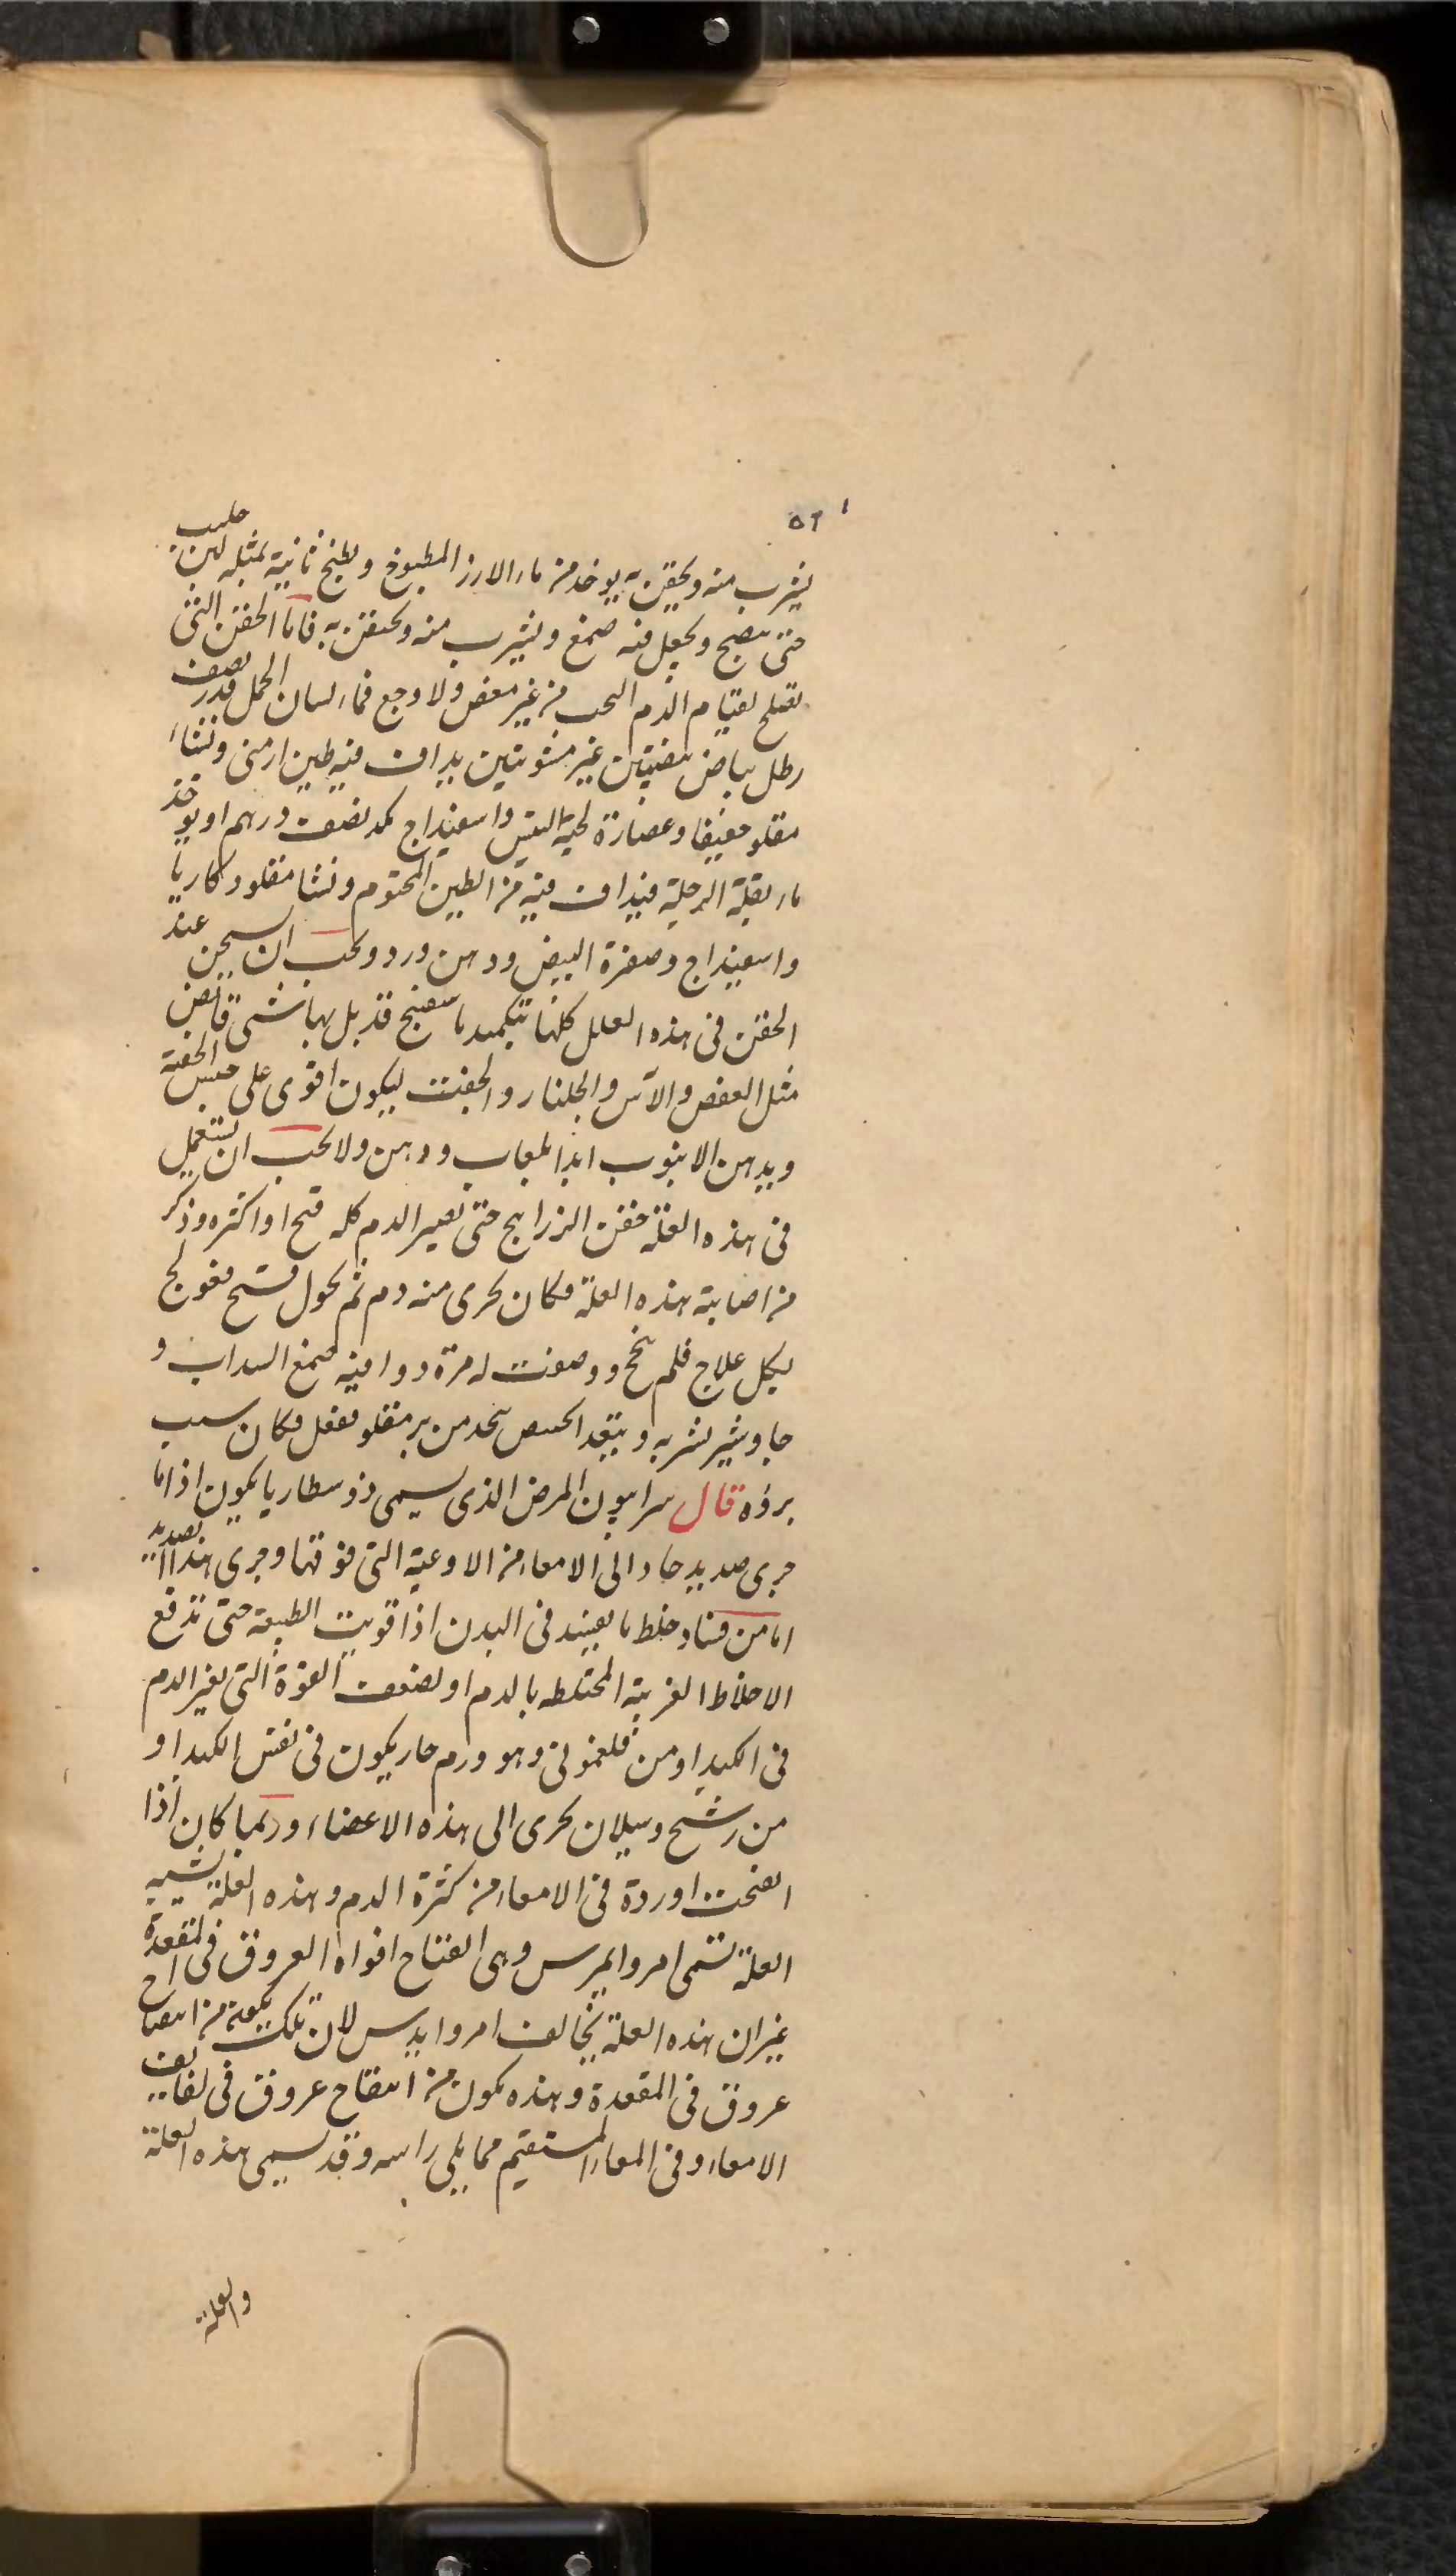 ٥٢
يشرب منه ويحقن به يوخذ من ماء الارز المطبوخ ويطبخ ثانية بمثله لبن حليب
حتى ينضج ويجعل فيه صمغ ويشرب منه ويحتقن به فاما الحقن التى
تصلح لقيام الدم البحت من غير مغص ولا وجع فماء لسان الحمل قدر نصف
رطل بياض بيضتين غير مشويتين يداف فيه طين ارمنى ونشاء
مقلو خفيفا وعصارة لحية التيس واسفيداج كمد نصف درهم او يوخذ
ماء بقلة الرجلة فيداف فيه من الطين المختوم ونشا مقلو وكاربا
واسفيداج وصفرة البيض ودهن ورد ويجب ان يسخن عند
الحقن فى هذه العلل كلها بتكميد باسفنج قد بل بماء شى قابض
مثل العفص والآس والجلنار والجفت ليكون اقوى على حبس الحقنة
ويدهن الانبوب ابدا بلعاب ودهن ولا يجب ان يستعمل
فى هذه العلة حقن الزرانيخ حتى يصير الدم كله قيح او اكثره وذكر
من اصابته هذه العلة فكان يجرى منه دم ثم يحول قيح فعولج
بكل علاج فلم ينجح ووصفت له مرة دوا فيه صمغ السداب و
جاوشير يشربه ويتغدا بخبيص يتخذ من بر مقلو ففعل فكان سبب
برؤه قال سرابيون المرض الذى يسمى ذوسطاريا يكون اذا ما
جرى صديد حاد الى الامعاء من الاوعية التى فوقها وجرى هذا الصديد
اما من فساد خلط ما يعفن فى البدن اذا قويت الطبيعة حتى تدفع
الاخلاط الغريبة المختلطه بالدم او لضعف القوة التى تغير الدم
فى الكبد او من فلغمونى وهو ورم حار يكون فى نفس الكبد او
من رشح وسيلان يجرى الى هذه الاعضاء وربما كان اذا
انفتحت اوردة فى الامعاء من كثرة الدم وهذه العلة يشبه
العلة تسمى امروايدس وهى انفتاح افواه العروق فى المقعدة
غير ان هذه العلة يخالف امروايدس لان تلك يكون من انفتاح
عروق فى المقعدة وهذه يكون من انفتاح عروق فى لفايف
الامعاء وفى المعاء المستقيم مما يلى راسه وقد يسمى هذه العلة
والعلة